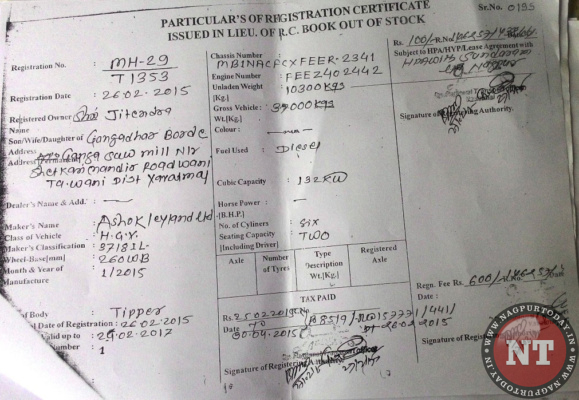 PARTICULAR'S OF REGISTRATION CERTIFICATE
ISSUED IN LIEU. OF R.C. BOOK OUT OF STOCK
Sr.No. 0195
Registration No. : MH-29
T1353
Registration Date : 26.02.2015
Registered Owner Jitendra
Name
Son/Wife/Daughter of Gangadhar Borde
Address
Address Ganga saw mill Nr
Road Wani
Ta. Wani Dist Yavatmal
Dealer's Name & Add. : —
Maker's Name : Ashok Leyland Ltd
Class of Vehicle : H.G.V.
Maker's Classification : 3718IL
Wheel-Base[mm] : 260WB
Month & Year of : 1/2015
Manufacture
of Body : Tipper
Date of Registration : 26.02.2015
Valid up to : 25.02.2017
Number : 1
Chassis Number :
MB1NACFCXFEER-2341
Engine Number :
FEEZ402442
Unladen Weight : 10300 kgs
[Kg.]
Gross Vehicle : 37000 kgs
Wt.[Kg.]
Colour :
Fuel Used : Diesel
Cubic Capacity : 132KW
Horse Power : —
[B.H.P.]
No. of Cyliners : Six
Seating Capacity : TWO
[Including Driver]
Axle Number of Tyres Type Description Wt.[Kg.] Registered Axle
TAX PAID
Rs. 25022015
Date TO
30.04.2015
dt 26.02.2015
Signature of Registering
Rs. 100/- R.No
Subject to HPA/HYP/Lease Agreement with
Sundaram
Signature of Registering Authority.
Regn. Fee Rs. 600/-
Date :
Signature of Reg
NT
WWW.NAGPURTODAY.IN